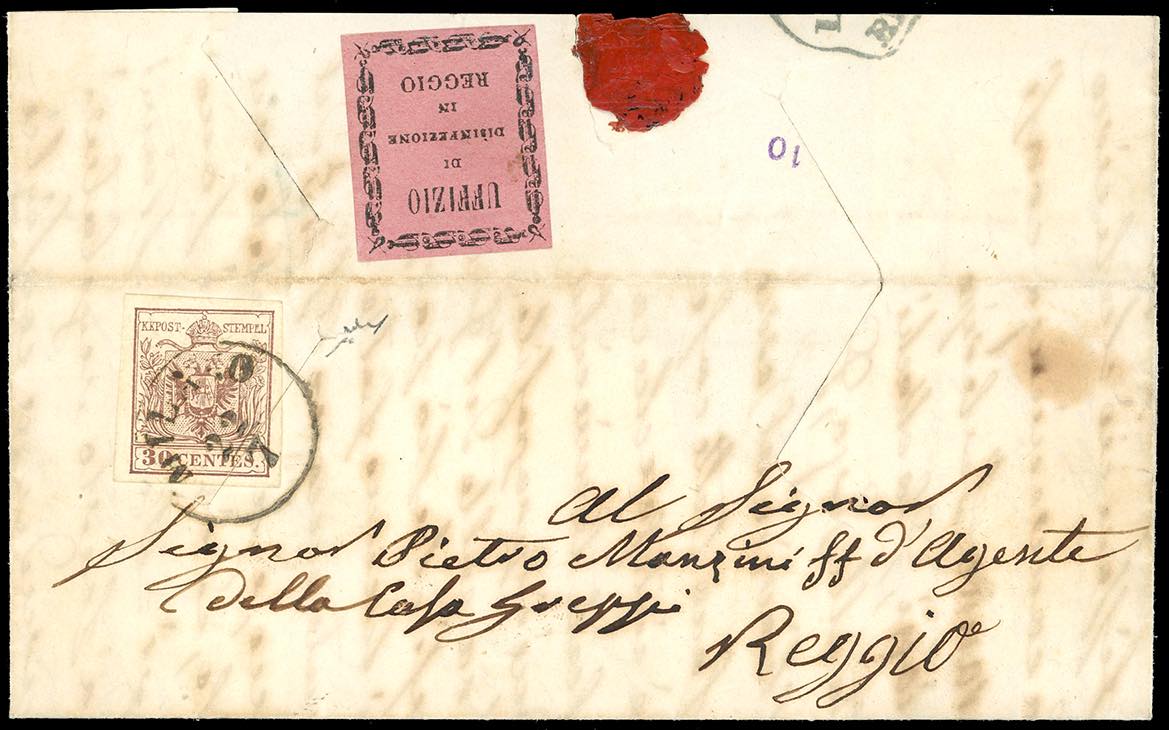 UFFIZIO
DI
DISINFEZIONE
IN
REGGIO
10
KKPOST-STEMPEL
30 CENTES.
MILANO
Al Signor
Signor Pietro Manzini ff d'Agente
della Casa Greppi
Reggio